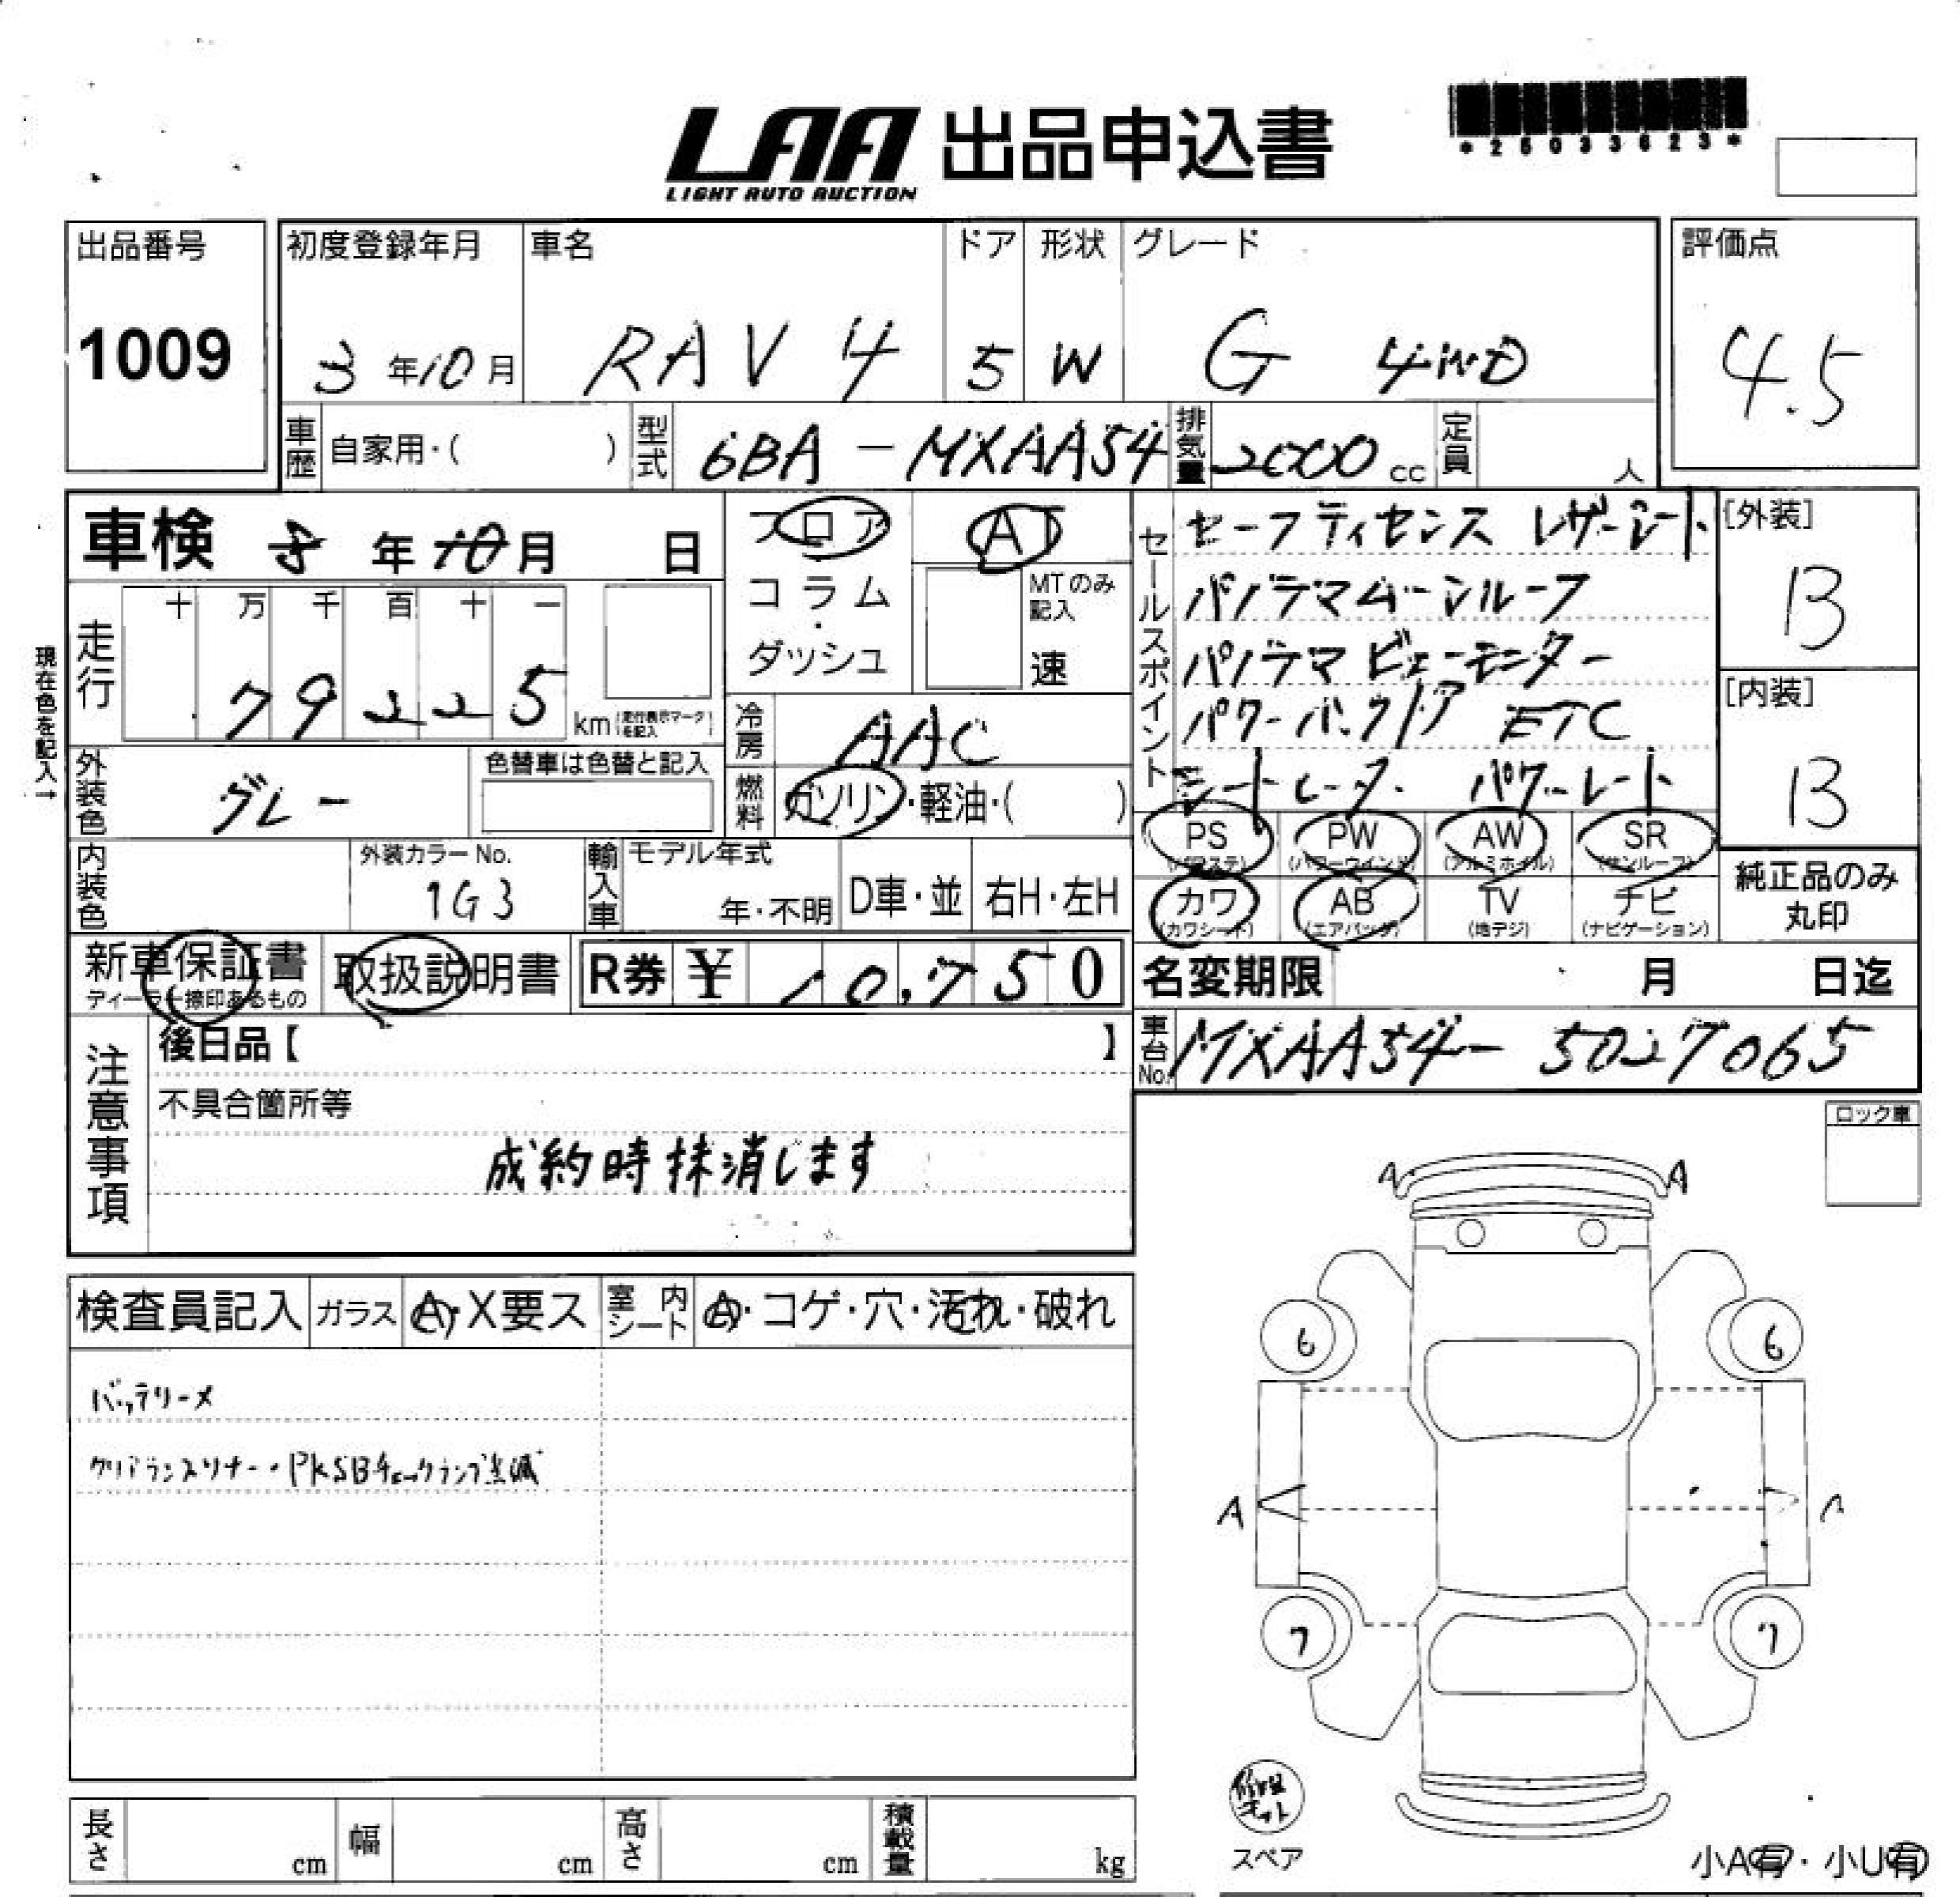 LAA 出品申込書
LIGHT AUTO AUCTION
*25033623*
出品番号 初度登録年月 車名 ドア 形状 グレード 評価点
1009 3年10月 RAV4 5 W G 4WD 4.5
車歴 自家用・( ) 型式 6BA-MXAA54 排気量 2000cc 定員 人
車検 8年10月 日
フロア AT
コラム・ダッシュ
MTのみ記入 速
セールスポイント
セーフティセンス レザーシート
パノラマムーンルーフ
パノラマビューモニター
パワーバックドア ETC
シートヒーター パワーシート
[外装]
B
[内装]
B
現在色を記入→
走行 十 万 千 百 十 一
79225 km (走行表示マークを記入)
冷房 AAC
外装色 グレー 色替車は色替と記入
燃料 ガソリン・軽油・( )
PS (パワステ) PW (パワーウインド) AW (アルミホイル) SR (サンルーフ)
カワ (カワシート) AB (エアバッグ) TV (地デジ) ナビ (ナビゲーション)
純正品のみ丸印
内装色 外装カラーNo. 1G3 輸入車 モデル年式 年・不明 D車・並 右H・左H
新車保証書 取扱説明書 R券 ¥ 10,750
ディーラー捺印あるもの
名変期限 月 日迄
車台No. MXAA54-5027065
注意事項
後日品【 】
不具合箇所等
成約時抹消します
ロック車
検査員記入 ガラス A・X要ス 室内シート A・コゲ・穴・汚れ・破れ
バッテリーメ
クリアランスソナー・PKSBチェックランプ点滅
A A
6 6
A
7 7
修理キット
スペア
小A有・小U有
長さ cm 幅 cm 高さ cm 積載量 kg